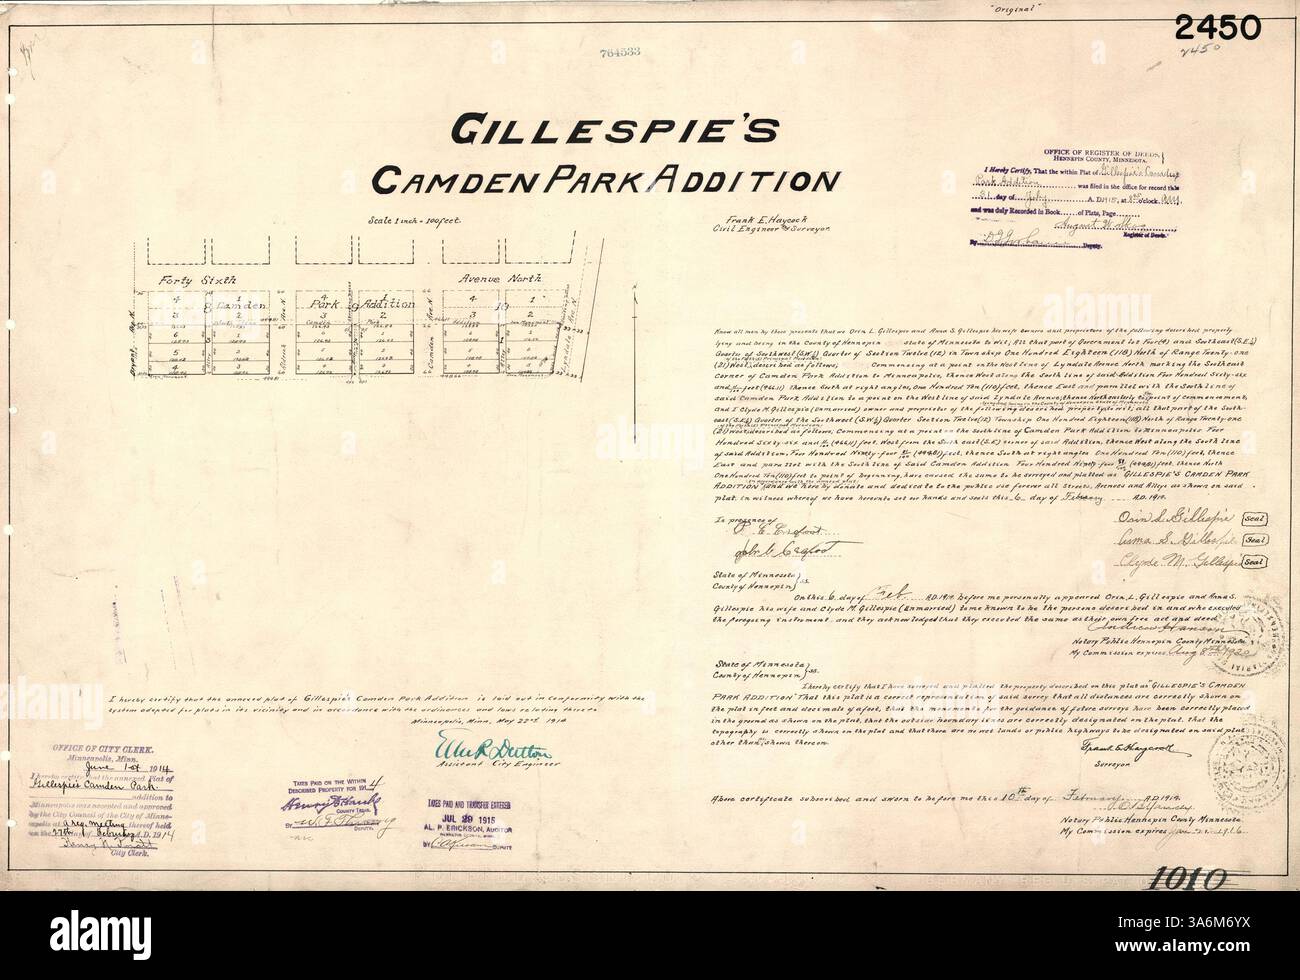 "Original"
2450
2450
764533
GILLESPIE'S
CAMDEN PARK ADDITION
Scale 1 inch = 100 feet.
Frank E. Haycock
Civil Engineer and Surveyor
OFFICE OF REGISTER OF DEEDS,
HENNEPIN COUNTY, MINNESOTA.
I Hereby Certify, That the within Plat of Gillespie's Camden
Park Addition was filed in the office for record this
31 day of July A. D. 1915, at o'clock
and was duly Recorded in Book of Plats, Page
August
Register of Deeds.
By Deputy.
Forty Sixth Avenue North
Camden Park Addition
Know all men by these presents that we Orin L. Gillespie and Anna S. Gillespie his wife owners and proprietors of the following described property
lying and being in the County of Hennepin state of Minnesota to wit; All that part of Government lot Four (4) and Southeast (S.E.¼)
Quarter of Southwest (S.W.¼) Quarter of Section Twelve (12) in Township One Hundred Eighteen (118) North of Range Twenty-one
(21) West, described as follows; Commencing at a point on the West line of Lyndale Avenue North marking the Southeast
Corner of Camden Park Addition to Minneapolis, thence West along the South line of said Addition Four Hundred Sixty-six
and 11/100 feet (466.11) Thence South at right angles, One Hundred Ten (110) feet, thence East and parallel with the South line of
said Camden Park Addition to a point on the West line of said Lyndale Avenue; thence Northeasterly to point of commencement,
and I Clyde M. Gillespie (Unmarried) owner and proprietor of the following described property to wit; all that part of the South-
east (S.E.¼) Quarter of the Southwest (S.W.¼) Quarter Section Twelve (12) Township One Hundred Eighteen (118) North of Range Twenty-one
(21) West described as follows; Commencing at a point on the South line of Camden Park Addition to Minneapolis Four
Hundred Sixty-six and 11/100 (466.11) feet, West from the South east (S.E.) corner of said Addition, thence West along the South line
of said Addition, Four Hundred Ninety-four 81/100 (494.81) feet, thence South at right angles One Hundred Ten (110) feet, thence
East and parallel with the South line of Said Camden Park Addition Four Hundred Ninety-four 81/100 (494.81) feet, thence North
One Hundred Ten (110) feet to point of beginning, have caused the same to be surveyed and platted as GILLESPIE'S CAMDEN PARK
ADDITION, and we hereby donate and dedicate to the public use forever all Streets, Avenues and Alleys as shown on said
plat. In witness whereof we have hereunto set our hands and seals this 6 day of February A.D. 1914.
In presence of
Orin L. Gillespie Seal
Anna S. Gillespie Seal
Clyde M. Gillespie Seal
State of Minnesota
County of Hennepin } S.S.
On this 6 day of Feb. A.D. 1914. before me personally appeared Orin. L. Gillespie and Anna S.
Gillespie his wife and Clyde M. Gillespie (Unmarried) to me known to be the persons described in and who executed
the foregoing instrument, and they acknowledged that they executed the same as their own free act and deed
Notary Public Hennepin County Minnesota
My Commission expires Aug 8th 1920
State of Minnesota
County of Hennepin } S.S.
I hereby certify that I have surveyed and platted the property described on this plat as "GILLESPIE'S CAMDEN
PARK ADDITION" That this plat is a correct representation of said survey that all distances are correctly shown on
the plat in feet and decimals of a foot, that the monuments for the guidance of future surveys have been correctly placed
in the ground as shown on the plat, that the outside boundary lines are correctly designated on the plat, that the
topography is correctly shown on the plat and that there are no wet lands or public highways to be designated on said plat
other than shown thereon.
Frank E. Haycock
Surveyor
Above certificate subscribed and sworn to before me this 10th day of February A.D. 1914.
Notary Public Hennepin County Minnesota
My Commission expires Jan 1916
I hereby certify that the annexed plat of Gillespie's Camden Park Addition is laid out in conformity with the
system adopted for plats in its vicinity and in accordance with the ordinances and laws relating thereto
Minneapolis, Minn. May 22nd 1914
Assistant City Engineer
OFFICE OF CITY CLERK.
Minneapolis, Minn.
June 1st 1914
I hereby certify that the annexed Plat of
Gillespie's Camden Park
addition to
Minneapolis was accepted and approved
by the City Council of the City of Minne-
apolis at a reg. meeting thereof held
on the 27th day of February A.D. 1914
Henry N. Knott
City Clerk.
TAXES PAID ON THE WITHIN
DESCRIBED PROPERTY FOR 1914
Henry
COUNTY TREAS.
BY DEPUTY.
TAXES PAID AND TRANSFER ENTERED
JUL 29 1915
AL. P. ERICKSON, AUDITOR
HENNEPIN COUNTY, MINN.
BY DEPUTY
1010
alamy
Image ID: 3A6M6YX
www.alamy.com